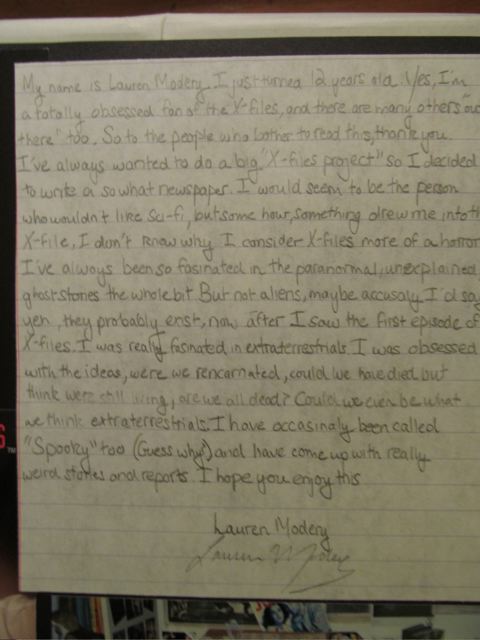 My name is Lauren Modery. I just turned 12 years old. Yes, I'm
a totally obsessed fan of the X-files, and there are many others "out
there" too. So to the people who bother to read this, thank you.
I've always wanted to do a big "X-files project" so I decided
to write a so what newspaper. I would seem to be the person
who wouldn't like Sci-fi, but some hour, something drew me into th
X-file, I don't know why. I consider X-files more of a horror
I've always been so fasinated in the paranormal, unexplained,
ghost stories the whole bit. But not aliens, maybe accusaly I'd say
yeh, they probably exist, now after I saw the first episode of
X-files. I was really fasinated in extraterrestrials. I was obsessed
with the ideas, were we rencarnated, could we have died but
think were still living, are we all dead? Could we even be what
we think extraterrestrials. I have occasinaly been called
"Spooky" too (Guess why!) and have come up with really
weird stories and reports. I hope you enjoy this
Lauren Modery
Lauren Modery